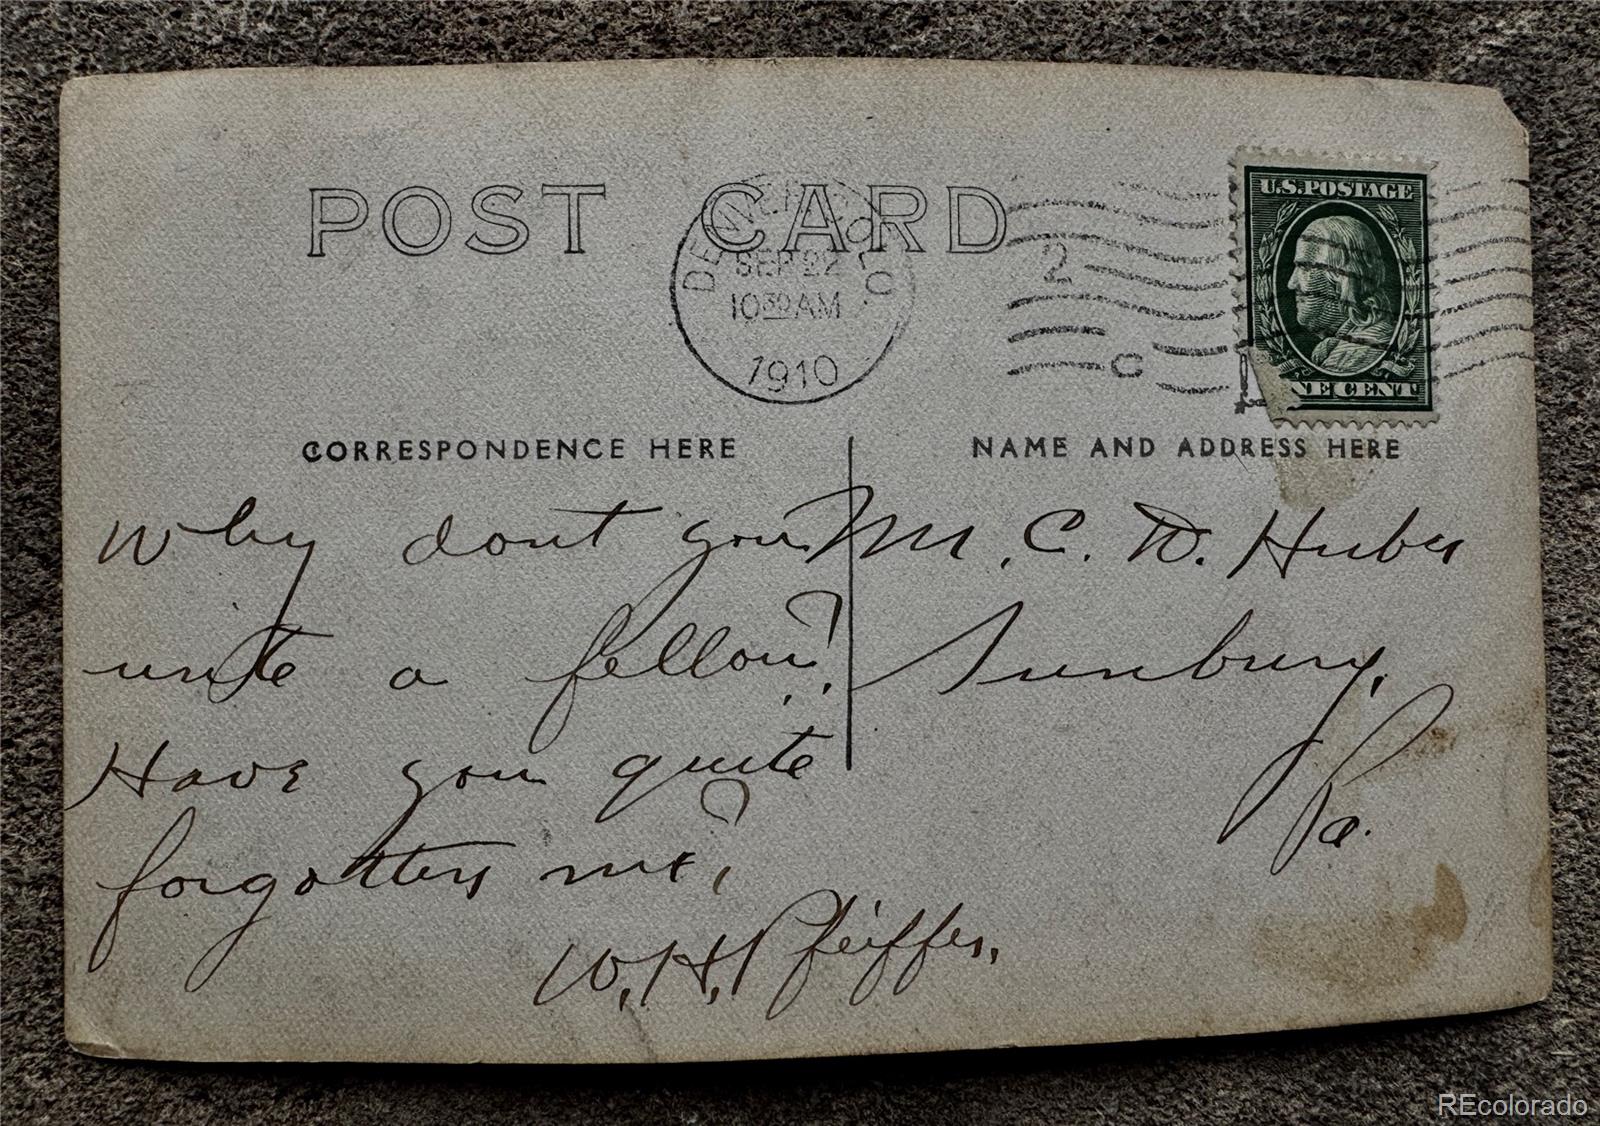 POST CARD
DENVER, COLO.
SEP 22
10 30 AM
1910
2
C
U.S. POSTAGE
NE CENT
CORRESPONDENCE HERE
NAME AND ADDRESS HERE
Why dont you
write a fellow?
Have you quite
forgotten me?
W. H. Pfeiffer.
Mr. C. D. Huber
Sunbury,
Pa.
REcolorado